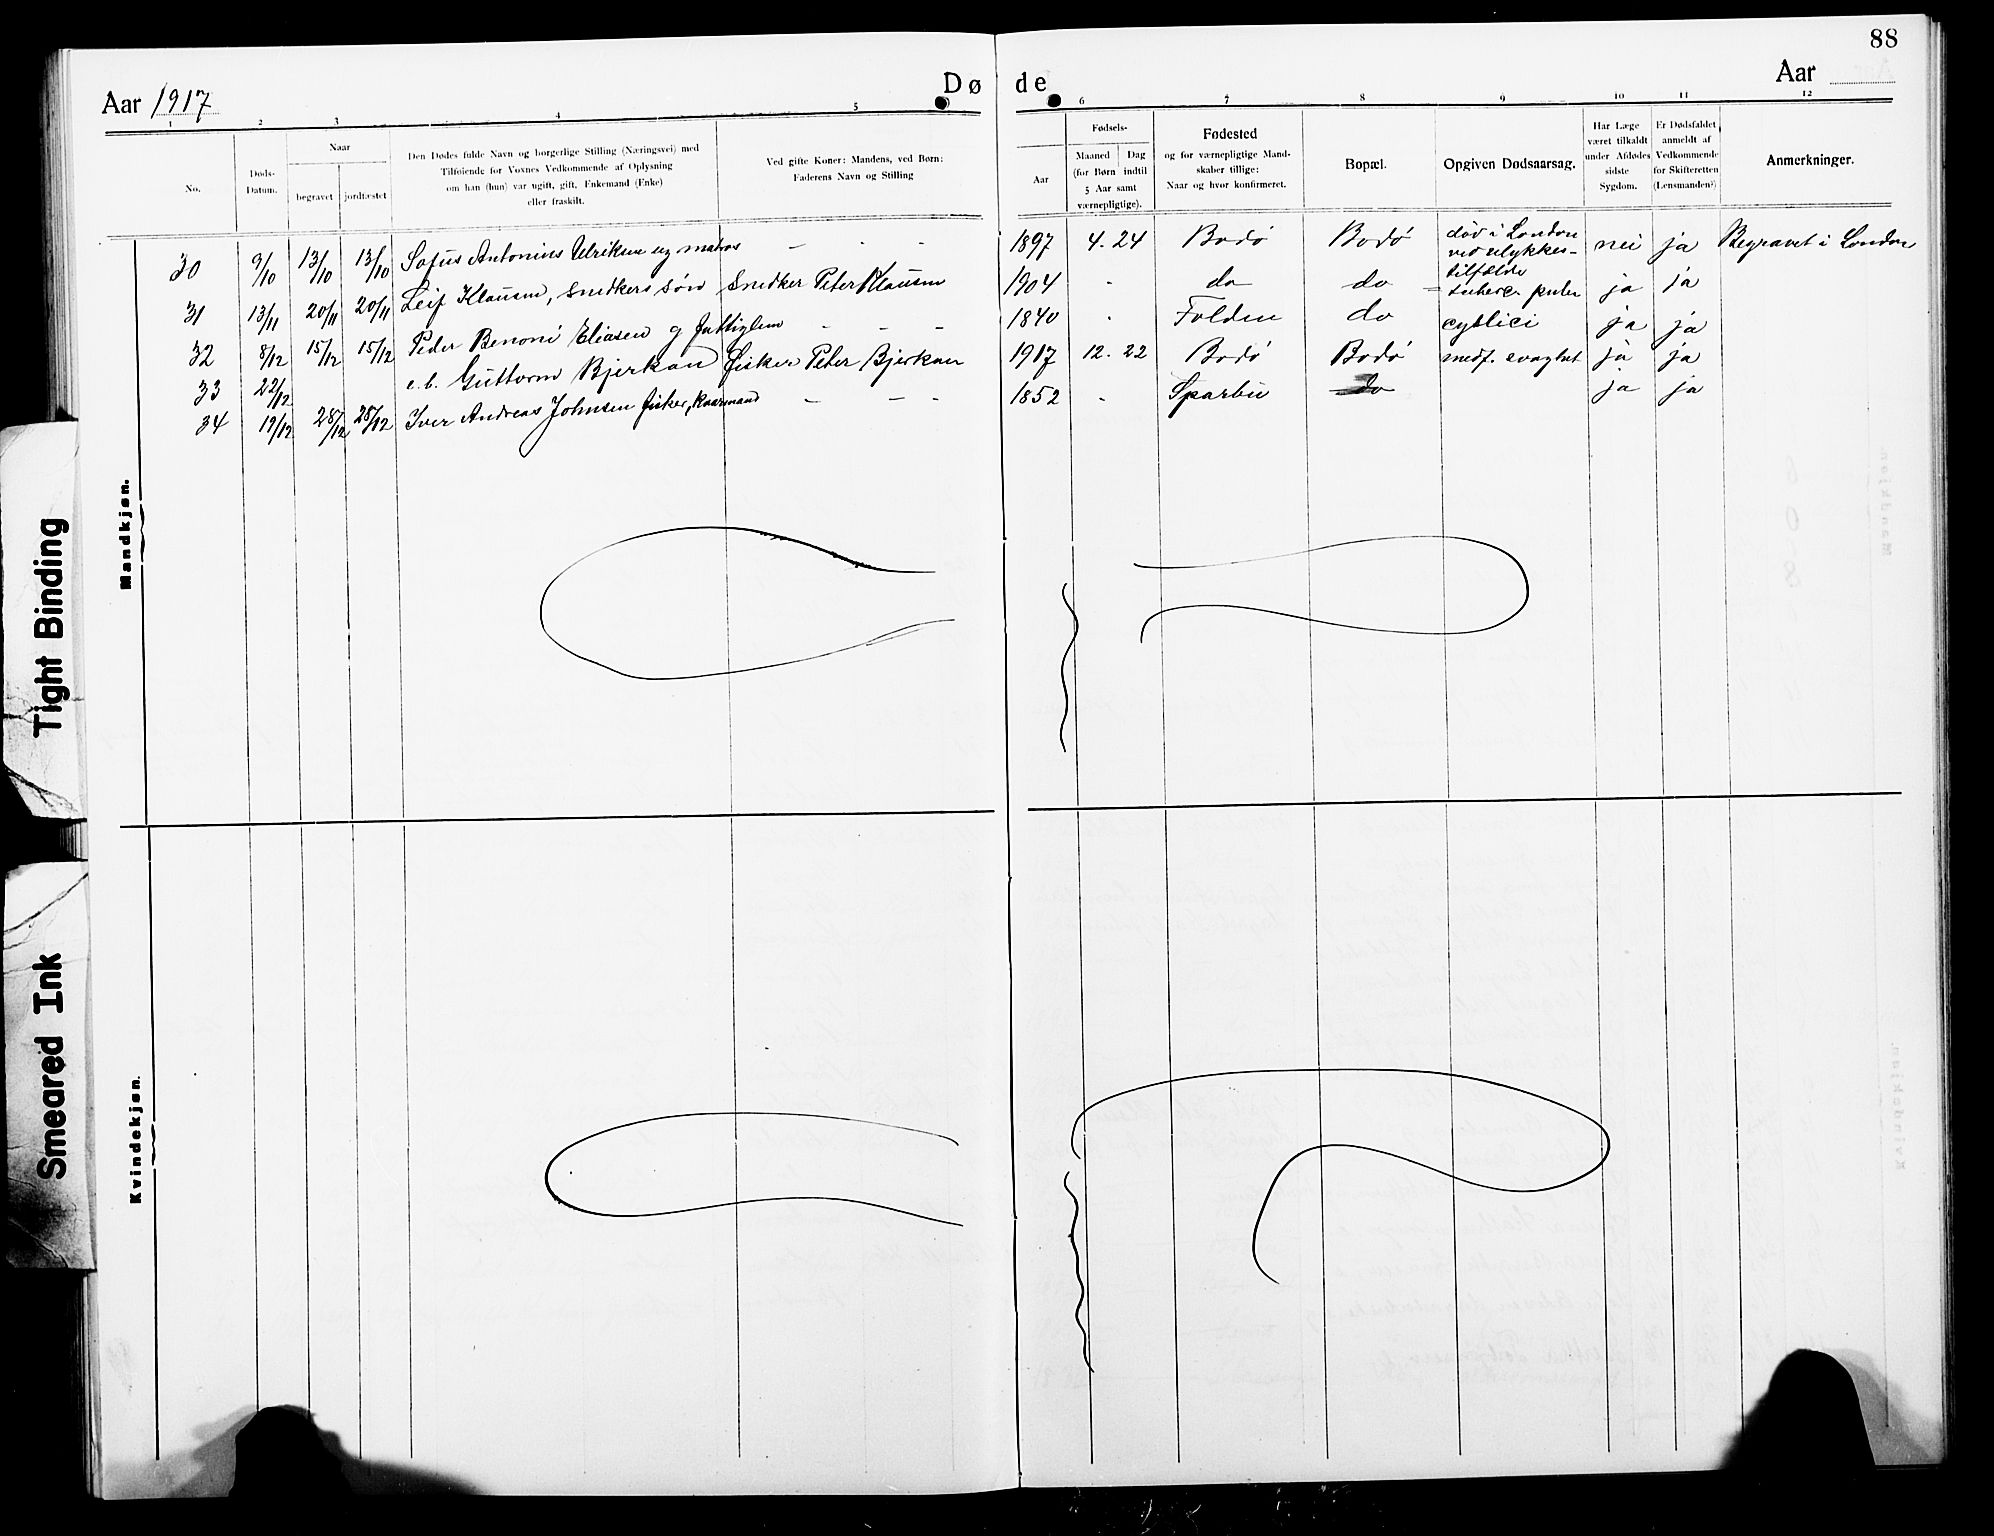 88
Aar 1917
Dø
de
Aar
1 2 3 4 5 6 7 8 9 10 11 12
No.
Døds-
Datum.
Naar
begravet
jordfæstet
Den Dødes fulde Navn og borgerlige Stilling (Næringsvei) med
Tilføiende for Voxnes Vedkommende af Oplysning
om han (hun) var ugift, gift, Enkemand (Enke)
eller fraskilt.
Ved gifte Koner: Mandens, ved Børn:
Faderens Navn og Stilling
Fødsels-
Aar
Maaned Dag
(for Børn indtil
5 Aar samt
værnepligtige).
Fødested
og for værnepligtige Mand-
skaber tillige:
Naar og hvor konfirmeret.
Bopæl.
Opgiven Dødsaarsag.
Har Læge
været tilkaldt
under Afdødes
sidste
Sygdom.
Er Dødsfaldet
anmeldt af
Vedkommende
for Skifteretten
(Lensmanden?)
Anmerkninger.
30 9/10 13/10 13/10 Sofus Antonius Ulriksen ug matros - - - 1897 4. 24 Bodø Bodø død i London ved ulykkes- tilfælde nei ja Begravet i London
31 13/11 20/11 20/11 Leif Klausen, snedkers søn Snedker Peter Klausen 1904 - do do tuberc. pulm ja ja
32 8/12 15/12 15/12 Peder Benoni Eliasen g fattiglem - - - 1840 . Folden do ja ja
33 22/12 e. b. Guttorm Bjerkan Fisker Peter Bjerkan 1917 12. 22 Bodø Bodø medf. svaghet ja ja
34 19/12 28/12 28/12 Iver Andreas Johnsen fisker, kaarmand - - - 1852 - Sparbu do ja ja
Mandkjøn.
Kvindekjøn.
Tight Binding
Smeared Ink